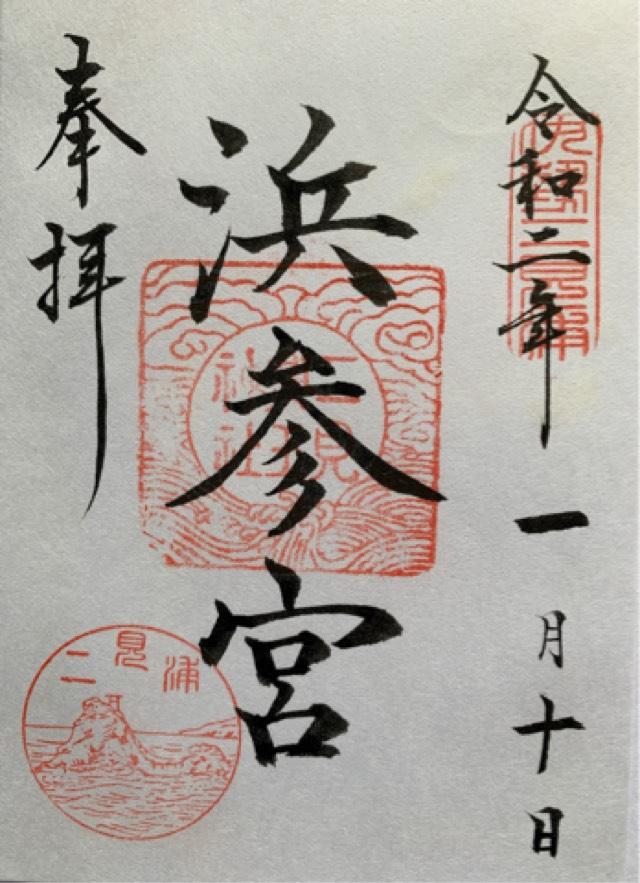 令和二年一月十日
伊勢二見浦
浜参宮
二見
神社
奉拝
二見浦